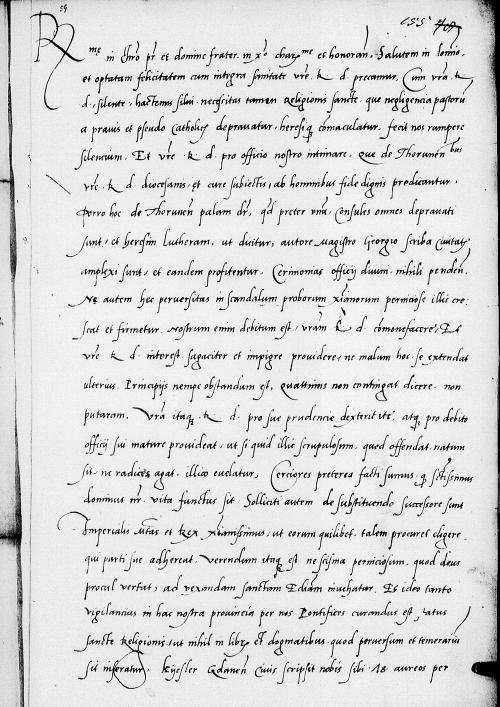 R
me in Christo pr et domine frater in xo charme et honoran. Salutem in domino
et optatam felicitatem cum integra sanitate vre R d. precamur, Cum vra R
d. silente, hactenus silui necessitas tamen Religionis sancte, que negligencia pastorum
a prauis et pseudo catholicis deprauatur, heresiq commaculatur, fecit nos rumpere
silencium. Et vre R d. pro officio nostro intimare, que de Thorunen bus
vre R d. diocesanis, et cure subiectis, ab hominibus fide dignis predicantur.
Porro hoc de Thorunen palam dr, qd preter vnu Consules omnes deprauati
sunt, et heresim Lutheram, ut dicitur, autore Magistro Georgio scriba Ciuitatis
amplexi sunt, et eandem profitentur. Cerimonias officij diuini nihili penden.
Ne autem hec peruersitas in scandalum proborum xianorum perniciose illic cre-
scat et firmetur. Nostrum enim debitum est, vram R d. comonefacere. Et
vre R d. interest sagaciter et impigre prouidere, ne malum hoc se extendat
ulterius. Principijs nempe obstandum est, quatinus non contingat dicere. non
putaram. Vra itaq R d. pro sue prudencie dexteritate, atq pro debito
officij sui mature prouideat, ut si quid illic scrupulosum, quod offendat natum
sit, ne radices agat, illico euelatur, Cerciores preterea facti sumus, q stissimus
dominus nr. vita functus sit. Solliciti autem de substituendo successore sunt
Imperialis Mtas et Rex xianissimus, ut eorum quilibet talem procuret eligere
qui parti sue adhereat. Verendum itaq est ne scisma perniciosum, quod deus
procul vertat, ad vexandam sanctam Eccliam inuehatur. Et ideo tanto
vigilancius in hac nostra prouincia per nos Pontifices curandus est, status
sancte Religionis, ut nihil in libris et dogmatibus quod peruersum et temerarium
sit inseratur. Kyesler Gdanen Ciuis scripsit nobis sibi 18 aureos per